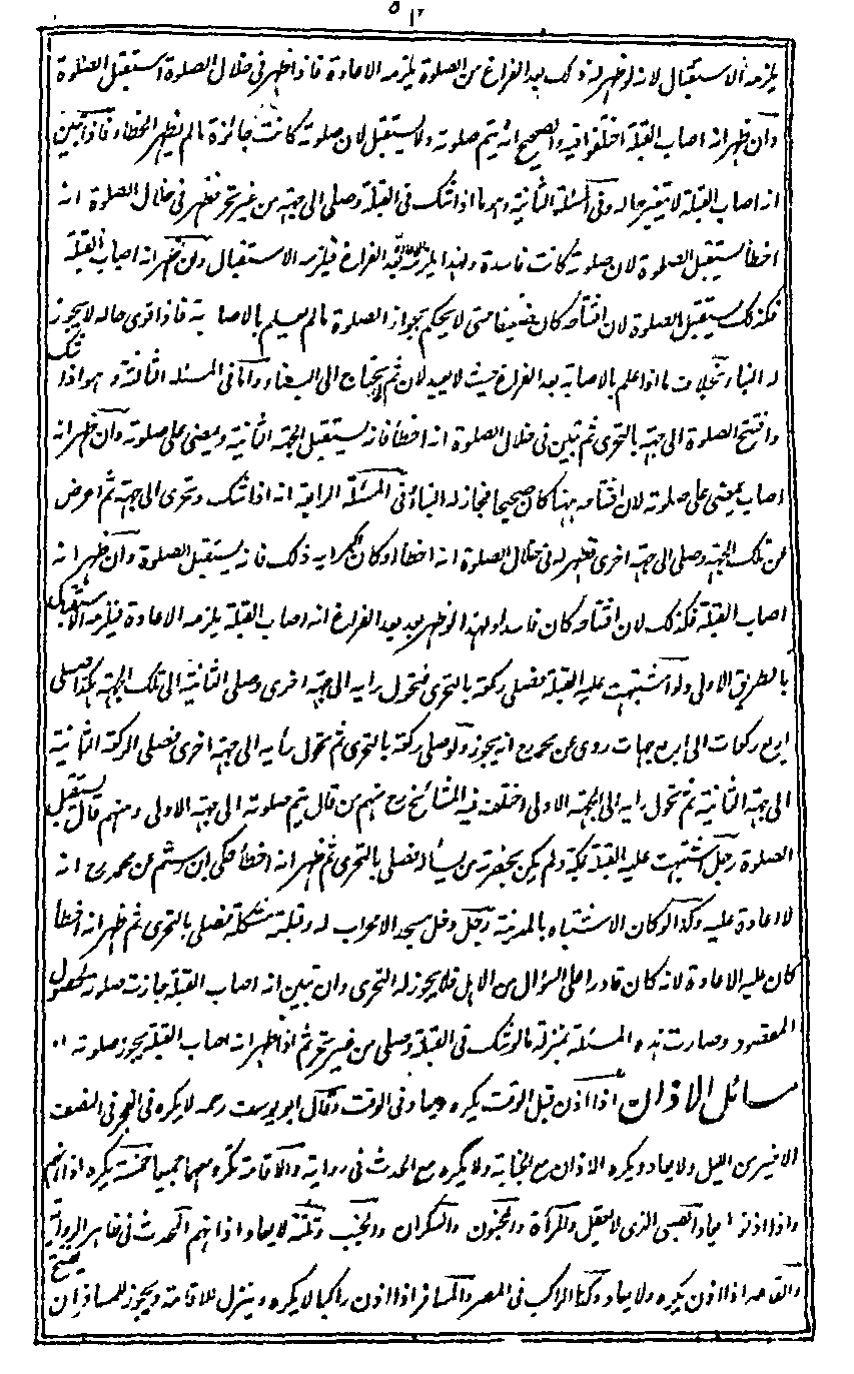 يلزمه الاستقبال لانه لو ظهر له ذلك بعد الفراغ من الصلوة يلزمه الاعادة فاذا ظهر فى خلال الصلوة استقبل الصلوة
وان ظهر انه اصاب القبلة اختلفوا فيه والصحيح انه يتم صلوته ولا يستقبل لان صلوته كانت جائزة ما لم يظهر الخطاء فاذا تبين
انه اصاب القبلة لا يتغير حاله وفى المسئلة الثانية وهو ما اذا شك فى القبلة وصلى الى جهة من غير تحر فظهر فى خلال الصلوة انه
اخطأ يستقبل الصلوة لان صلوته كانت فاسدة ولهذا يلزمه الاعادة بعد الفراغ فيلزمه الاستقبال وان ظهر انه اصاب القبلة
فكذلك يستقبل الصلوة لان افتتاحه كان ضعيفا حتى لا يحكم بجواز الصلوة ما لم يعلم بالاصابة فاذا قوى حاله لا يجوز
له البناء بخلاف ما اذا علم بالاصابة بعد الفراغ حيث لا يعيد لان ثم لا يحتاج الى البناء واما فى المسئلة الثالثة وهو اذا شك
وافتتح الصلوة الى جهة بالتحرى ثم تبين فى خلال الصلوة انه اخطأ فانه يستقبل الجهة الثانية ويمضى على صلوته وان ظهر انه
اصاب يمضى على صلوته لان افتتاحه ههنا كان صحيحا فجاز له البناء وفى المسئلة الرابعة انه اذا شك وتحرى الى جهة ثم اعرض
عن تلك الجهة وصلى الى جهة اخرى فظهر له فى خلال الصلوة انه اخطأ او كان اكبر رايه ذلك فانه يستقبل الصلوة وان ظهر انه
اصاب القبلة فكذلك لان افتتاحه كان فاسدا ولهذا لو ظهر بعد الفراغ انه اصاب القبلة يلزمه الاعادة فيلزمه الاستقبال
بالطريق الاولى ولو اشتبهت عليه القبلة فصلى ركعة بالتحرى فتحول رايه الى جهة اخرى وصلى الثانية الى تلك الجهة هكذا صلى
اربع ركعات الى اربع جهات روى عن محمد رح انه يجوز ولو صلى ركعة بالتحرى ثم تحول رأيه الى جهة اخرى فصلى الركعة الثانية
الى جهة الثانية ثم تحول رايه الى الجهة الاولى اختلف فيه المشائخ رح منهم من قال يتم صلوته الى جهة الاولى ومنهم قال يستقبل
الصلوة رجل اشتبهت عليه القبلة بمكة ولم يكن بحضرته من يسأله فصلى بالتحرى ثم ظهر انه اخطأ حكى ابن رستم عن محمد رح انه
لا اعادة عليه وكذا لو كان الاشتباه بالمدينة رجل دخل مسجد الامحراب له وقبلته مشكلة فصلى بالتحرى ثم ظهر انه اخطأ
كان عليه الاعادة لانه كان قادرا على السؤال من الاهل فلا يجوز له التحرى وان تبين انه اصاب القبلة جازت صلوته لحصول
المقصود وصارت هذه المسئلة بمنزلة ما لو شك فى القبلة وصلى من غير تحر ثم اذا ظهر انه اصاب القبلة يجوز صلوته
مسائل الاذان اذا اذن قبل الوقت يكره ويعاد فى الوقت وقال ابو يوسف رحمه لا يكره فى الفجر فى النصف
الاخير من الليل ولا يعاد ويكره الاذان مع الجنابة ولا يكره مع الحدث فى رواية والاقامة تكره معهما جميعا خمسة يكره اذانهم
واذا اذنوا يعاد الصبى الذى لا يعقل والمرأة والمجنون والسكران والجنب وثمنة لا يعاد اذانهم المحدث فى ظاهر الرواية
والقاعد اذا اذن يكره ولا يعاد وكذا الراكب فى المصر والمسافر اذا اذن راكبا لا يكره وينزل للاقامة ويجوز للمسافر ان